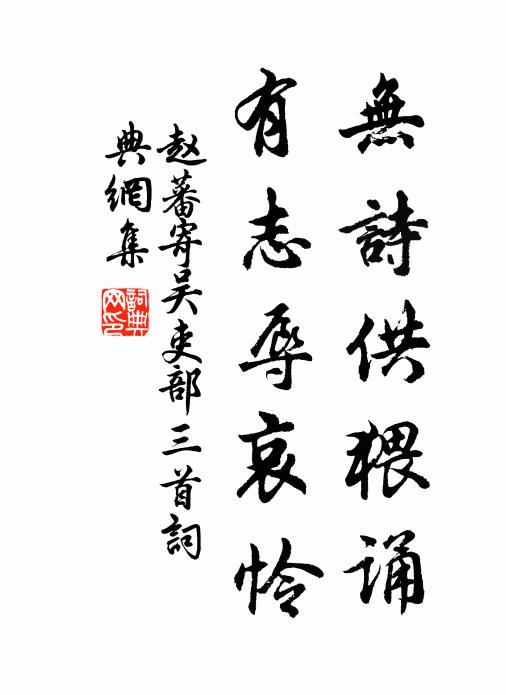 無詩供猥诵
有志辱哀怜
赵蕃寄吴吏部三首詞
典網集
詞典
网印